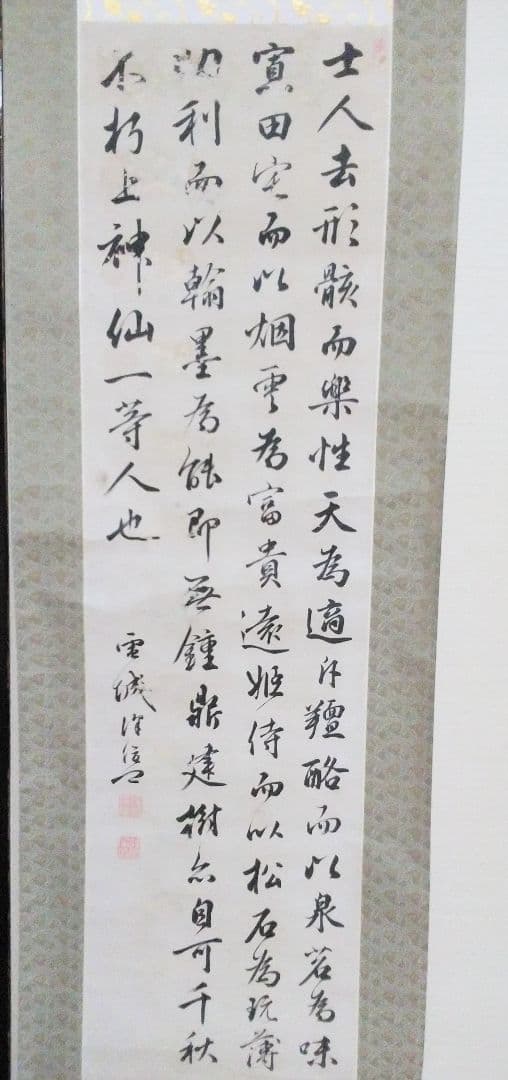 士人去形骸而樂性天為適斥羶酪而以泉茗為味
寘田宅而以烟雲為富貴遠姬侍而以松石為玩薄
功利而以翰墨為能即無鍾鼎建樹亦自可千秋
不朽上神仙一等人也
雪城